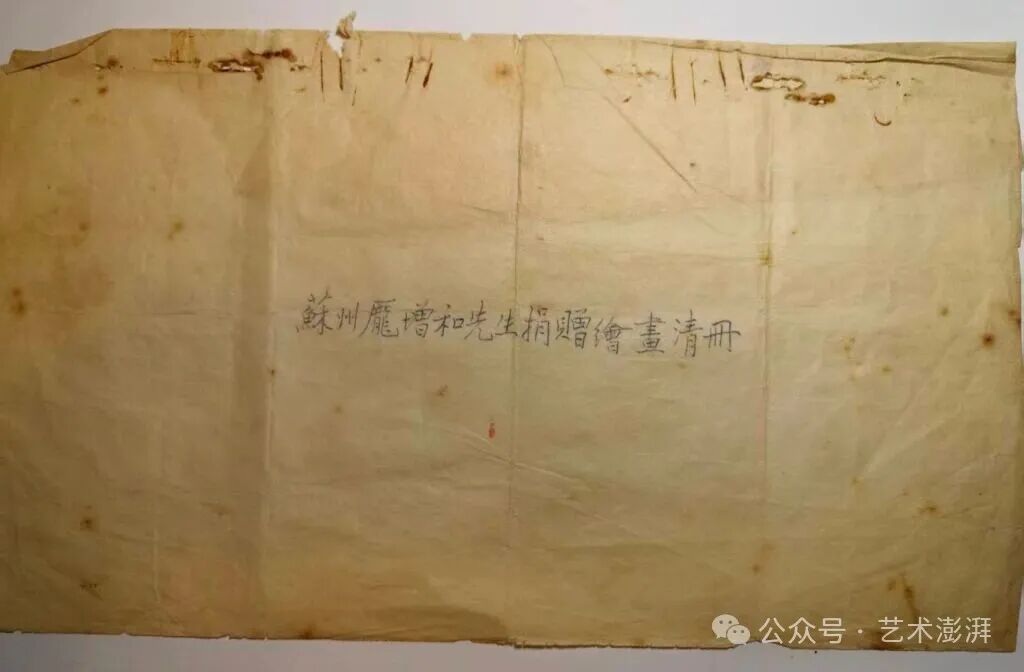 蘇州龐增和先生捐贈繪畫清冊
公众号·艺术澎湃